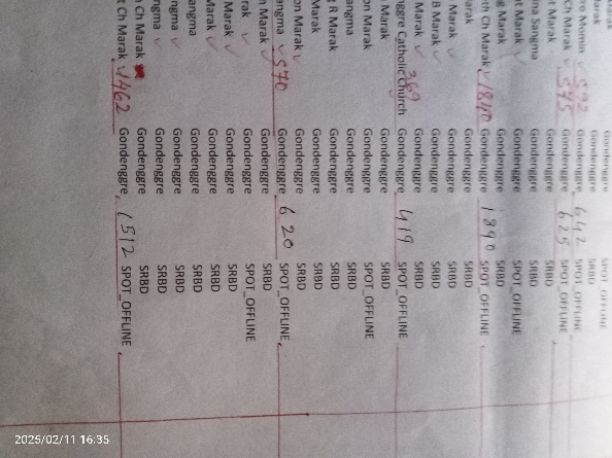 SPOT_OFFLINE
Marak Gondenggre SRBD
Momin ✓ 592 Gondenggre 642 SPOT_OFFLINE
Ch Marak ✓ 575 Gondenggre 625 SPOT_OFFLINE
t Marak Gondenggre SRBD
na Sangma Gondenggre SRBD
t Marak Gondenggre SPOT_OFFLINE
g Marak Gondenggre SRBD
th Ch Marak ✓ 1840 Gondenggre 1890 SPOT_OFFLINE
arak Gondenggre SRBD
Marak ✓ Gondenggre SRBD
B Marak ✓ Gondenggre SRBD
Marak ✓ Gondenggre SRBD
nggre Catholic church 369 Gondenggre 419 SPOT_OFFLINE
Marak Gondenggre SRBD
on Marak Gondenggre SPOT_OFFLINE
angma Gondenggre SRBD
R Marak Gondenggre SRBD
Marak Gondenggre SRBD
on Marak ✓ Gondenggre SRBD
angma ✓ 570 Gondenggre 620 SPOT_OFFLINE
n Marak ✓ Gondenggre SRBD
rak ✓ Gondenggre SPOT_OFFLINE
Marak ✓ Gondenggre SRBD
Marak ✓ Gondenggre SRBD
angma Gondenggre SRBD
ngma ✓ Gondenggre SRBD
ngma ✓ Gondenggre SRBD
Ch Marak Gondenggre SRBD
t Ch Marak ✓ 1462 Gondenggre 1512 SPOT_OFFLINE
2025/02/11 16:35